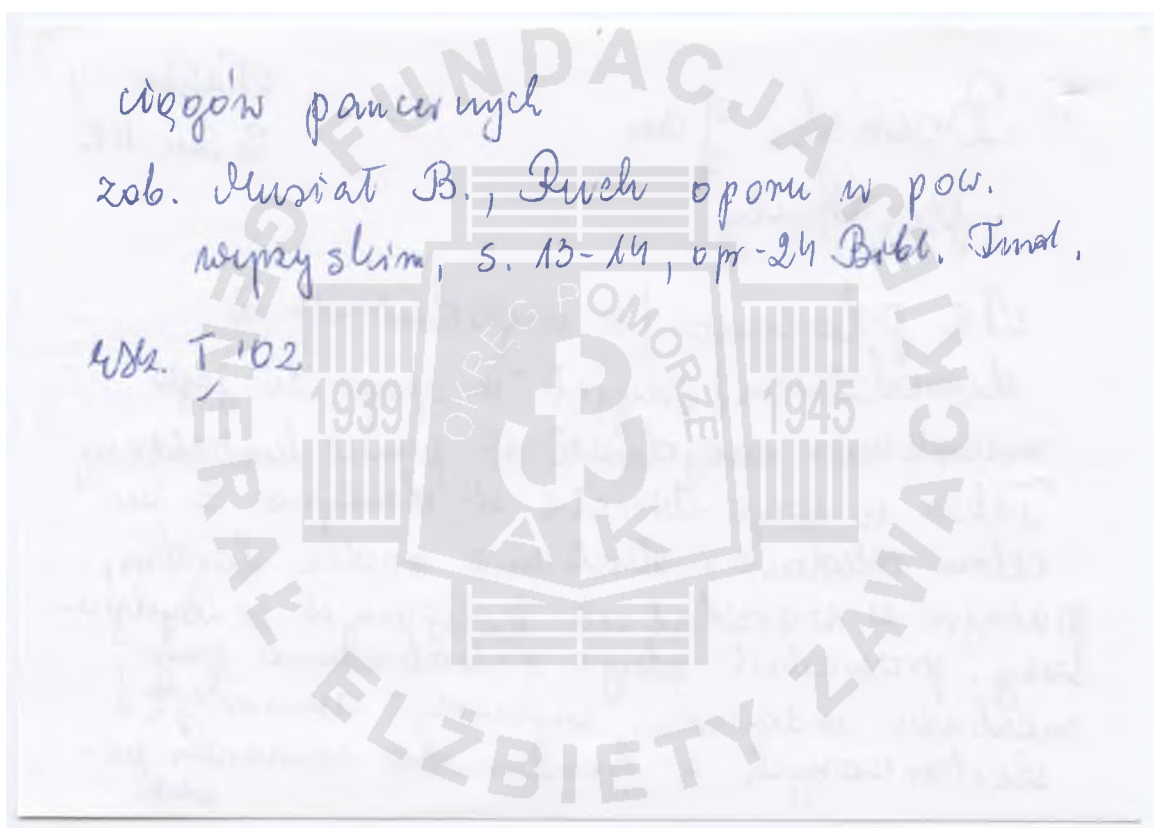 ciągów pancernych
zob. Musiał B., Ruch oporu w pow.
wyrzyskim, s. 13-14, opr-24 Bibl. Fund.
wsk. T '02
FUNDACJA
GENERAŁ ELŻBIETY ZAWACKIEJ
OKRĘG POMORZE
1939 1945
AK